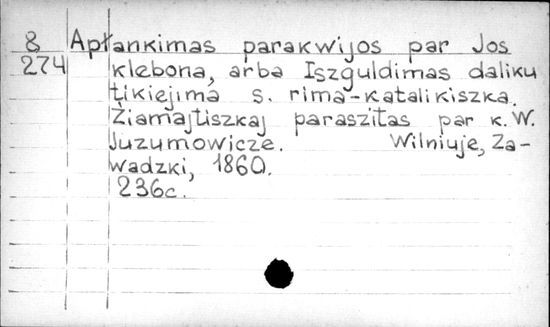 8 Apłankimas parakwijos par Jos
274 klebona, arba Iszguldimas daliku
tikiejima s. rima-katalikiszka.
Żiamajtiszkaj paraszitas par k. W.
Juzumowicze. Wilniuje, Za-
wadzki, 1860.
236c.